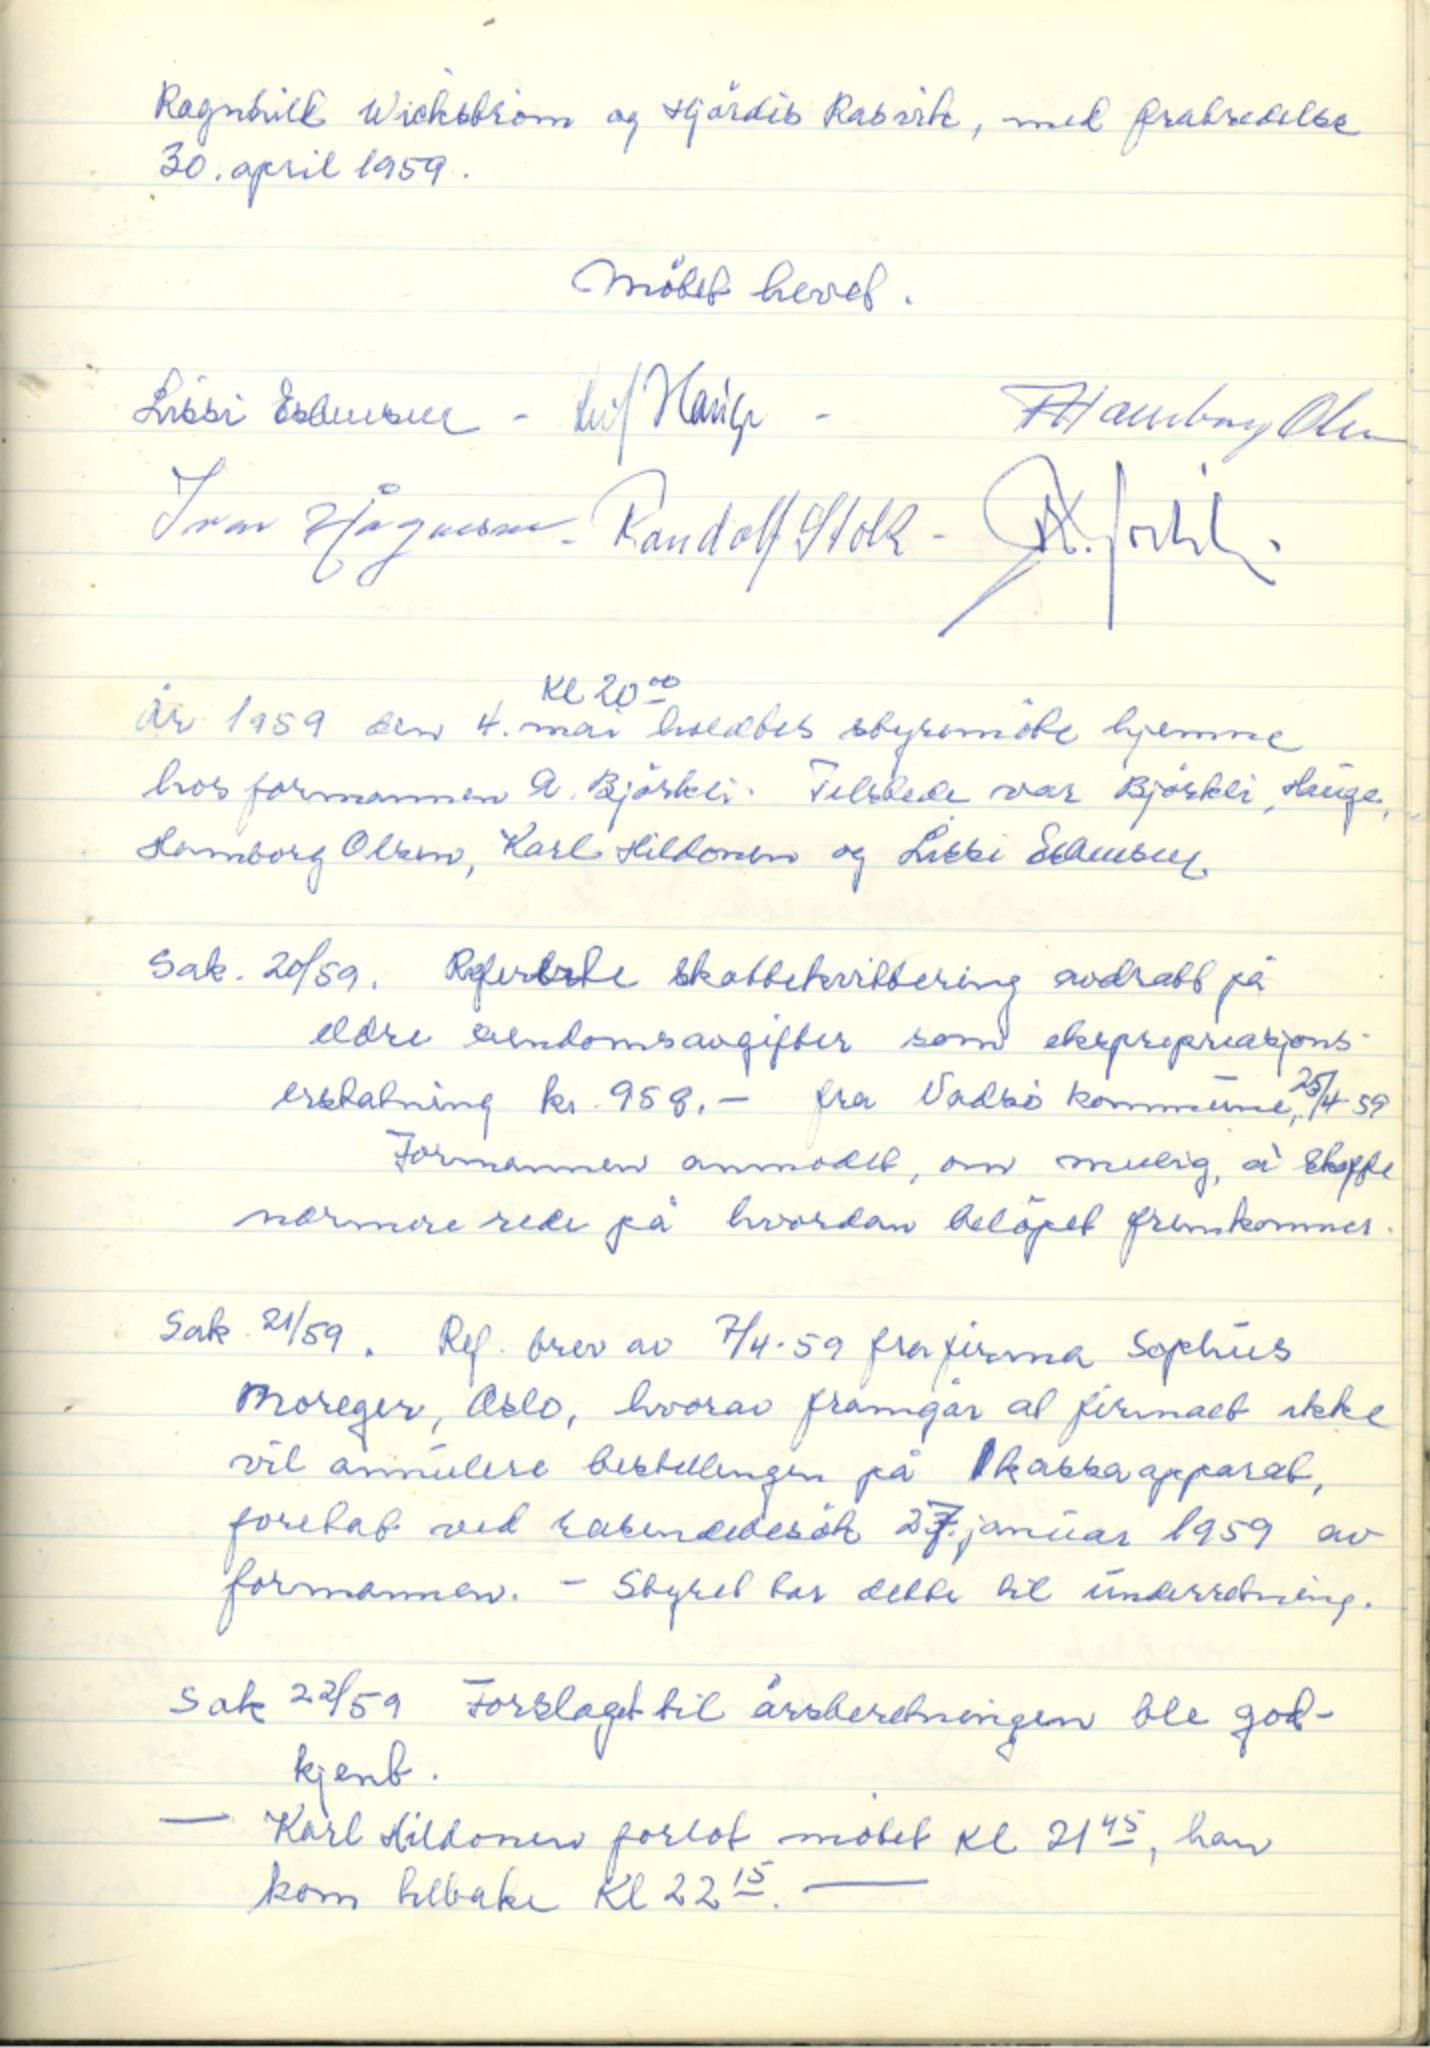 Ragnhild Wickstrøm og Hjördis Rasvik, med fratredelse
30. april 1959.
Mötet hevet.
Lissi Esbensen - Leif Hauge - Hamborg Olsen
Ivar Hågensen - Randolf Stolk -
Kl 20⁰⁰
År 1959 den 4. mai holdtes styremöte hjemme
hos formannen A. Björkli. Tilstede var Björkli, Hauge,
Hamborg Olsen, Karl Hildonen og Lissi Esbensen.
Sak. 20/59. Refererte skattekvittering avdratt på
eldre eiendomsavgifter som ekspropriasjons-
erstatning kr. 958.- fra Vadsö kommune, 25/4-59
Formannen anmodet, om mulig, å skaffe
nærmere rede på hvordan belöpet fremkommer.
Sak 21/59. Ref. brev av 7/4-59 fra firma Sophus
Moreger, Oslo, hvorav framgår at firmaet ikke
vil annulere bestillingen på 1 kassaapparat,
foretatt ved reisendebesök 27. januar 1959 av
formannen. - Styret tar dette til underretning.
Sak 22/59 Forslaget til årsberetningen ble god-
kjent.
— Karl Hildonen forlot mötet Kl 21⁴⁵, han
kom tilbake Kl 22¹⁵. —